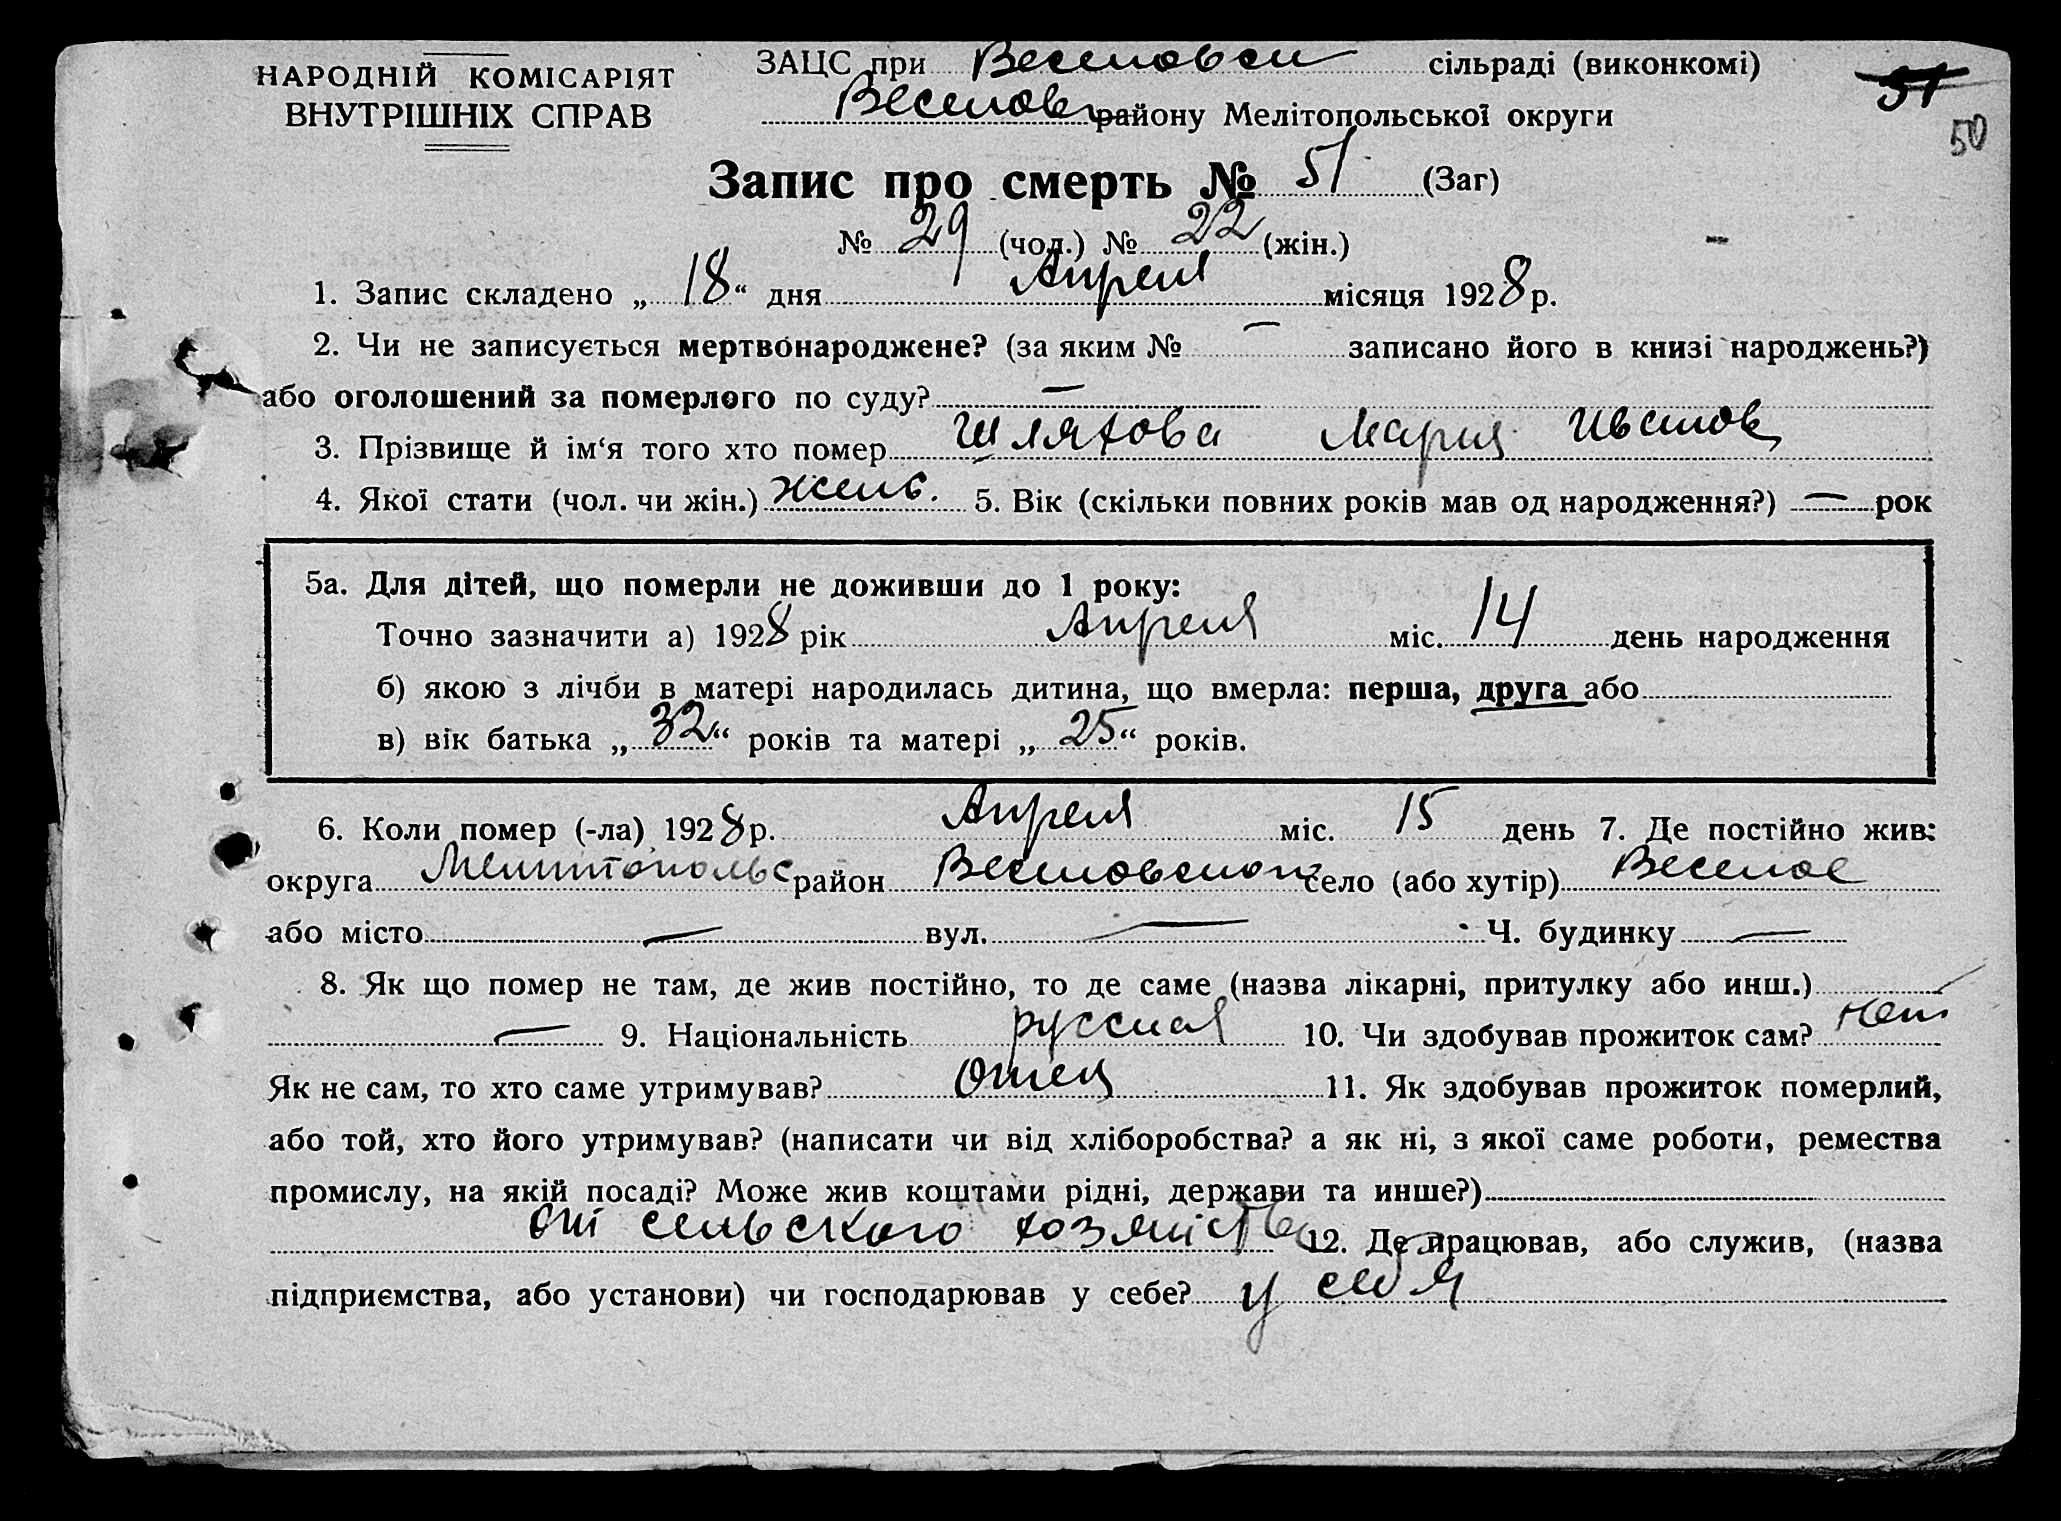 НАРОДНІЙ КОМІСАРІЯТ
ВНУТРІШНІХ СПРАВ
ЗАЦС при Веселовск сільраді (виконкомі)
Веселовс району Мелітопольської округи
51
50
Запис про смерть № 51 (Заг)
№ 29 (чол.) № 22 (жін.)
1. Запис складено „ 18 “ дня Апреля місяця 1928 р.
2. Чи не записується мертвонароджене? (за яким № — записано його в книзі народжень?)
або оголошений за померлого по суду? —
3. Прізвище й ім‘я того хто помер Шляхова Мария Иванов
4. Якої стати (чол. чи жін.) женс. 5. Вік (скільки повних років мав од народження?) — рок
5а. Для дітей, що померли не доживши до 1 року:
Точно зазначити а) 1928 рік Апреля міс. 14 день народження
б) якою з лічби в матері народилась дитина, що вмерла: перша, друга або
в) вік батька „ 32 “ років та матері „ 25 “ років.
6. Коли помер (-ла) 1928 р. Апреля міс. 15 день 7. Де постійно жив:
округа Мелитопольс район Веселовского село (або хутір) Веселое
або місто — вул. — Ч. будинку —
8. Як що помер не там, де жив постійно, то де саме (назва лікарні, притулку або инш.)
— 9. Національність русская 10. Чи здобував прожиток сам? Нет
Як не сам, то хто саме утримував? Отец 11. Як здобував прожиток померлий,
або той, хто його утримував? (написати чи від хліборобства? а як ні, з якої саме роботи, ремества
промислу, на якій посаді? Може жив коштами рідні, держави та инше?)
От сельского хозяйства 12. Де працював, або служив, (назва
підприємства, або установи) чи господарював у себе? у себя